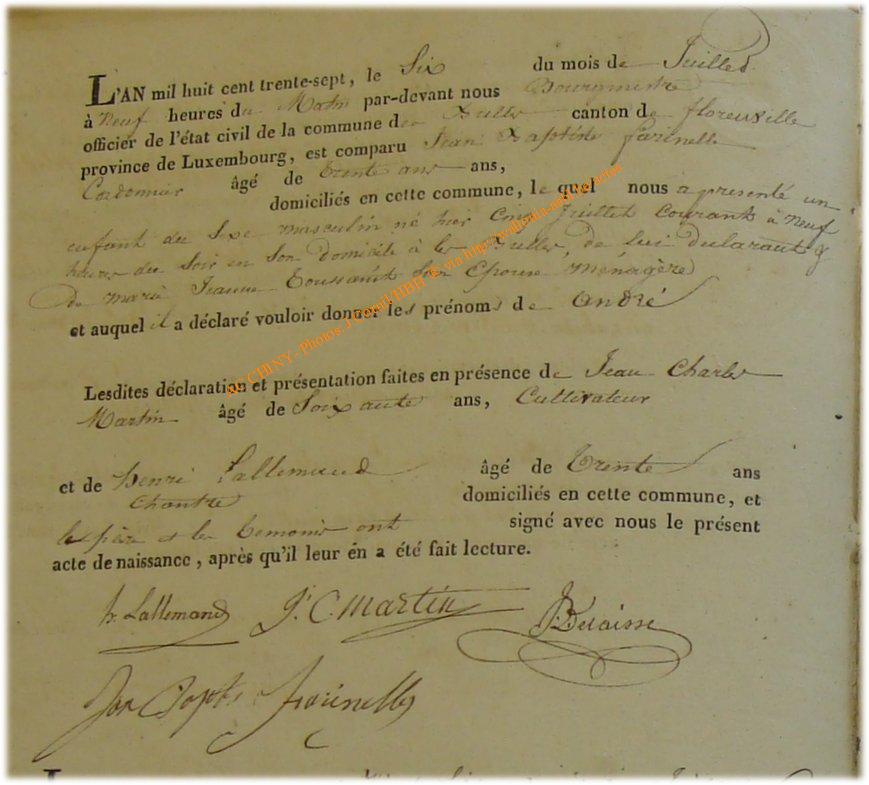 L'AN mil huit cent trente-sept, le Six du mois de Juillet
à Neuf heures du Matin par-devant nous Bourgmestre
officier de l'état civil de la commune des Bulles canton de florenville
province de Luxembourg, est comparu Jean Baptiste farinelle
Cordonnier âgé de trente ans ans,
domiciliés en cette commune, le quel nous a presenté un
enfant du Sexe masculin né hier Cinq Juillet Courant à Neuf
heures du Soir en Son Domicile à les Bulles, de lui déclarant &
de marie Jeanne Toussaint Son Epouse ménagère
et auquel il a déclaré vouloir donner les prénoms de André
CHINY - Photos
via http://
Lesdites déclaration et présentation faites en présence de Jean Charles
Martin âgé de Soixante ans, Cultivateur
et de henri Lallemand âgé de trente ans
Chantre domiciliés en cette commune, et
le père et les temoins ont signé avec nous le présent
acte de naissance, après qu'il leur en a été fait lecture.
h. Lallemand J. C. Martin
Jan Bapts farinelle